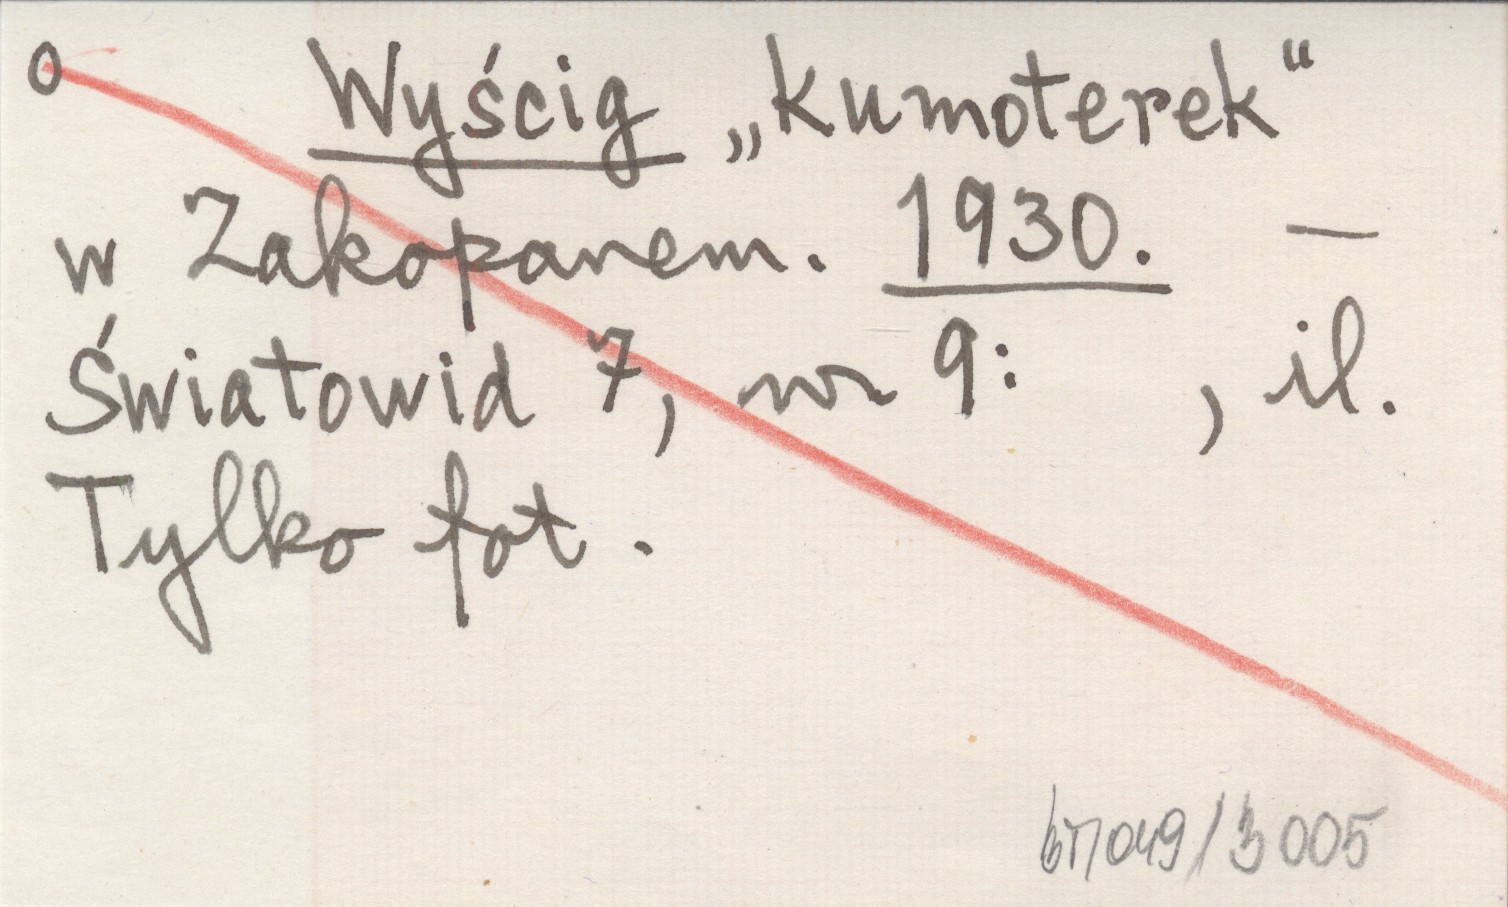 0 Wyścig „kumoterek“
w Zakopanem. 1930. —
Światowid 7, nr 9: , il.
Tylko fot.